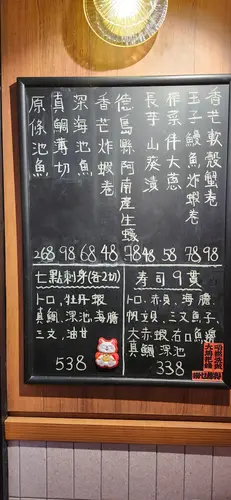 香芒軟殼蟹卷 98
玉子鰻魚炸蝦卷 78
菜什大 58
長芋山葵漬 48
德島縣阿南產生蠔 98
香芒炸蝦卷 48
深海池魚 68
真鯛薄切 98
原條池魚 268
七點刺身(各2切)
トロ、牡丹蝦
真鯛、深池、海膽
三文、油甘
538
壽司9貫
トロ、赤貝、海膽
帆立貝、三文魚子、
大赤蝦、右口魚邊
真鯛、深池
338